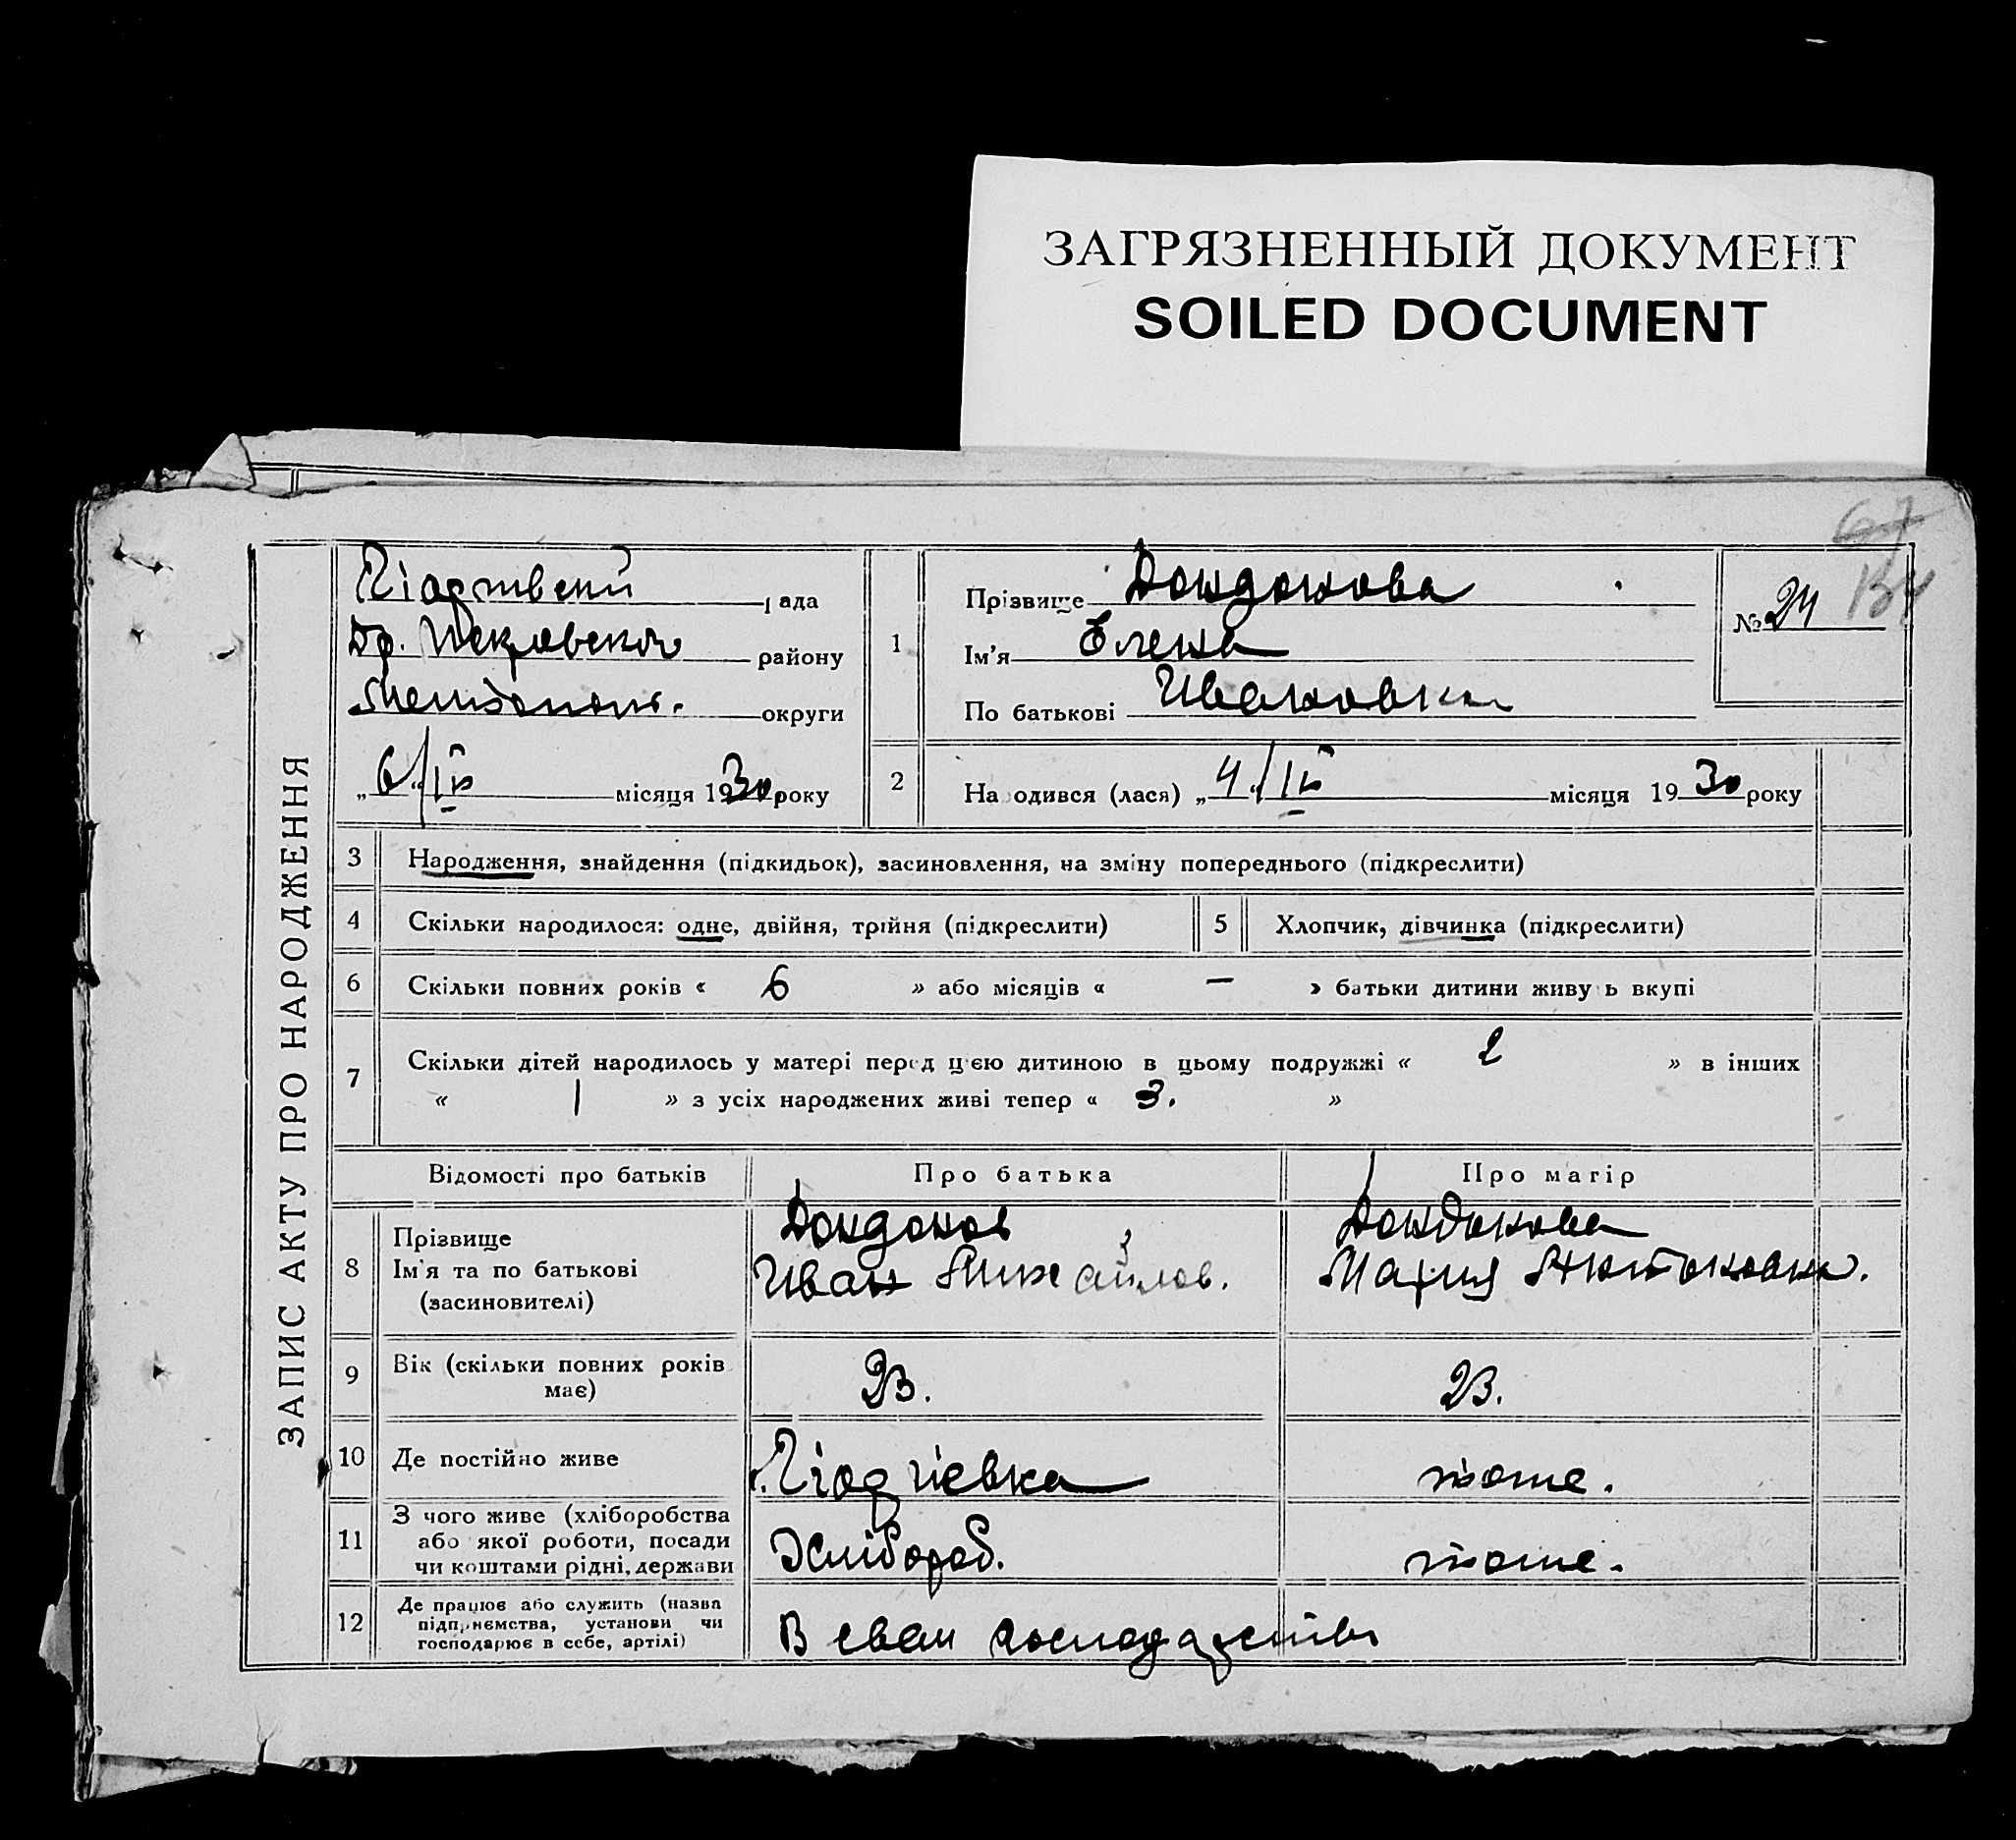 ЗАГРЯЗНЕННЫЙ ДОКУМЕНТ
SOILED DOCUMENT
ЗАПИС АКТУ ПРО НАРОДЖЕННЯ
67
рада
району
округи
„6“/IV місяця 1930 року
1
Прізвище Дондонова
Ім'я Елена
По батькові Ивановна
№ 24
2
Народився (лася) „4“/IV місяця 1930 року
3 Народження, знайдення (підкидьок), засиновлення, на зміну попереднього (підкреслити)
4 Скільки народилося: одне, двійня, трійня (підкреслити)
5 Хлопчик, дівчинка (підкреслити)
6 Скільки повних років « 6 » або місяців « — » батьки дитини живуть вкупі
7 Скільки дітей народилось у матері перед цією дитиною в цьому подружжі « 2 » в інших
« 1 » з усіх народжених живі тепер « 3. »
Відомості про батьків Про батька Про матір
8 Прізвище
Ім'я та по батькові
(засиновителі)
Дондонов
Иван Михайлов.
Дондонова
Мария Антоновна.
9 Вік (скільки повних років
має)
23. 23.
10 Де постійно живе
тоже.
11 З чого живе (хліборобства
або якої роботи, посади
чи коштами рідні, держави
Хлібороб. тоже.
12 Де працює або служить (назва
підприємства, установи чи
господарює в себе, артілі)
В свом господарстві